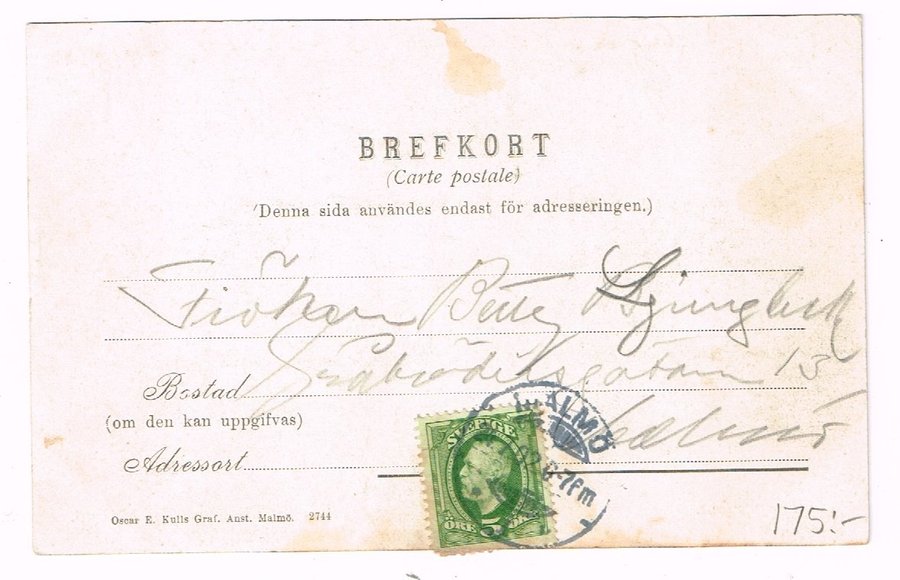 BREFKORT
(Carte postale)
(Denna sida användes endast för adresseringen.)
Fröken Betty Ljungbeck
Gråbrödersgatan 13
Bostad
(om den kan uppgifvas)
Malmö
Adressort
SVERIGE
5
ÖRE ÖRE
MALMÖ
6-7 fm
Oscar E. Kulls Graf. Anst. Malmö. 2744
175:-